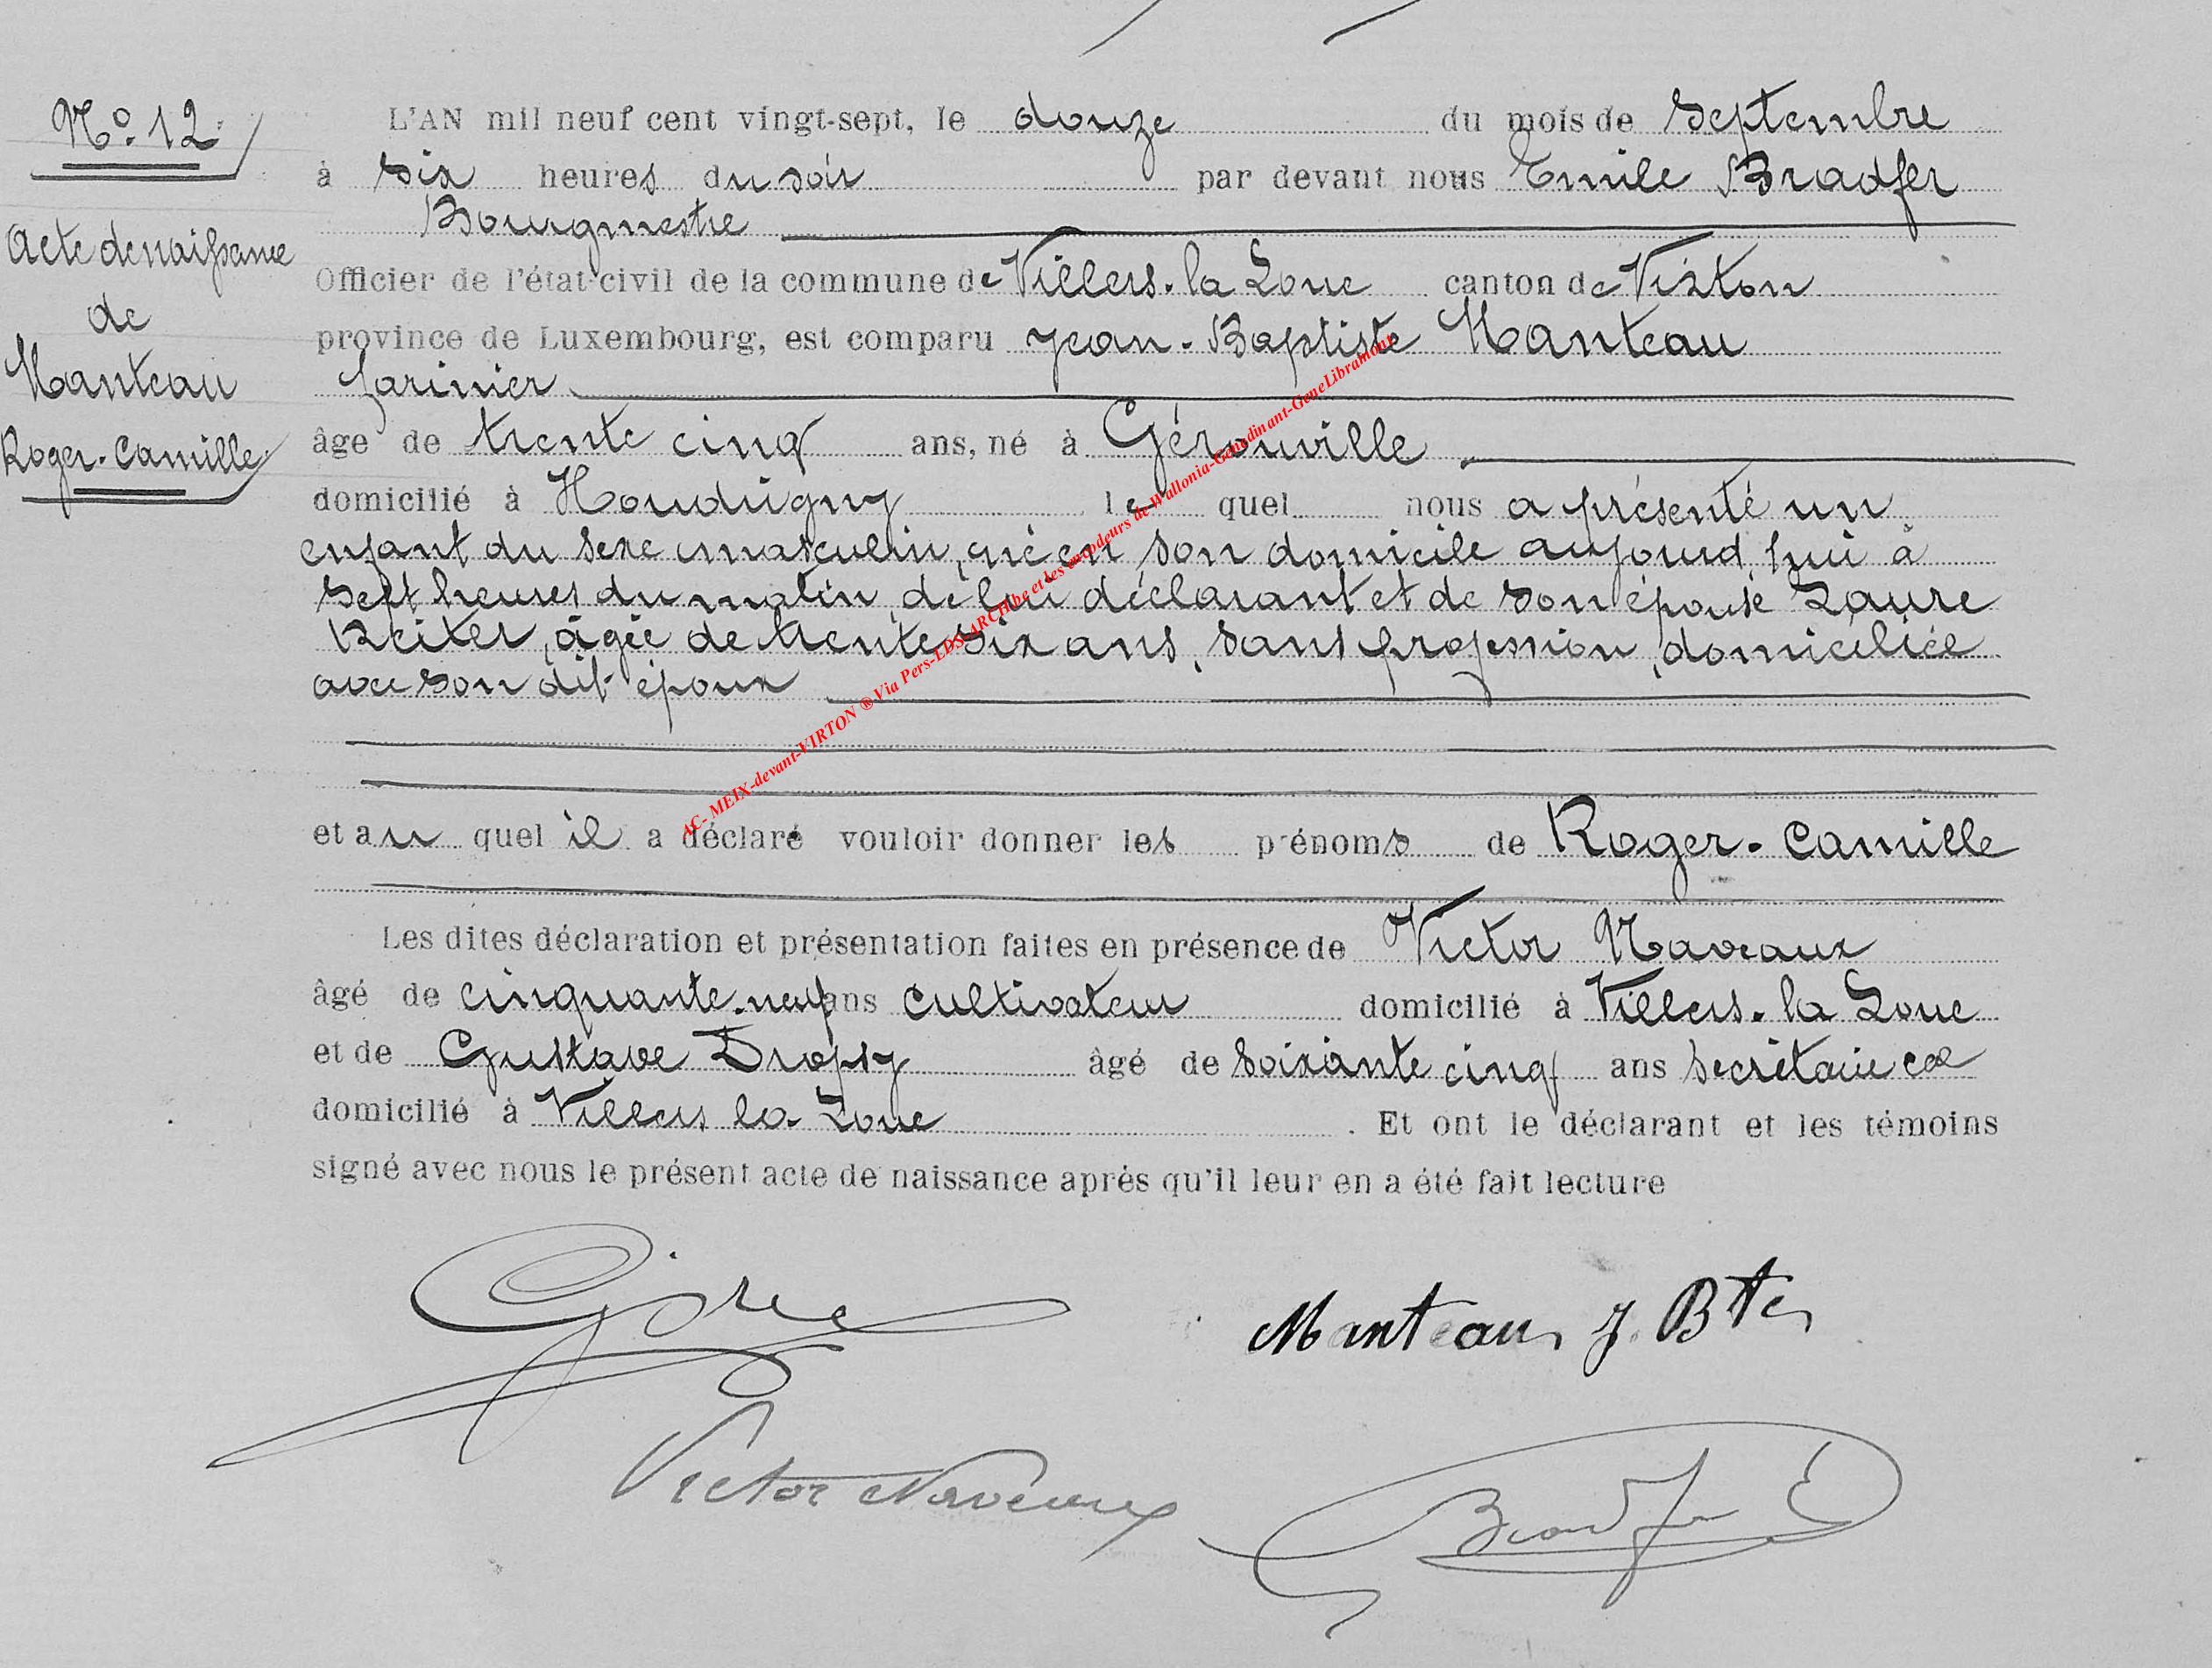 N° 12.
Acte de naissance
de
Manteau
Roger-Camille
L'AN mil neuf cent vingt-sept, le douze du mois de Septembre
à six heures du soir par devant nous Emile Bradfer
Bourgmestre
Officier de l'état-civil de la commune de Villers-la Loue canton de Virton
province de Luxembourg, est comparu Jean-Baptiste Manteau
farinier
âge de trente cinq ans, né à Gérouville
domicilié à Houdrigny le quel nous a présenté un
enfant du sexe masculin, né en son domicile aujourd'hui à
sept heures du matin, de lui déclarant et de son épouse Laure
Reiter, âgée de trente six ans, sans profession, domiciliée
avec son dit époux
et au quel il a déclaré vouloir donner les prénoms de Roger-Camille
Les dites déclaration et présentation faites en présence de Victor Naveaux
âgé de cinquante-neuf ans cultivateur domicilié à Villers-la Loue
et de Gustave Dropsy âgé de soixante cinq ans secrétaire cal
domicilié à Villers la-Loue . Et ont le déclarant et les témoins
signé avec nous le présent acte de naissance après qu'il leur en a été fait lecture
Manteau, J. Bte,
Victor Naveaux
Bradfer E
AC- MEIX-devant-VIRTON ® Via Pers-LDS-ARCH.be et les encodeurs de Wallonia-Genedinant-GeneLibramont